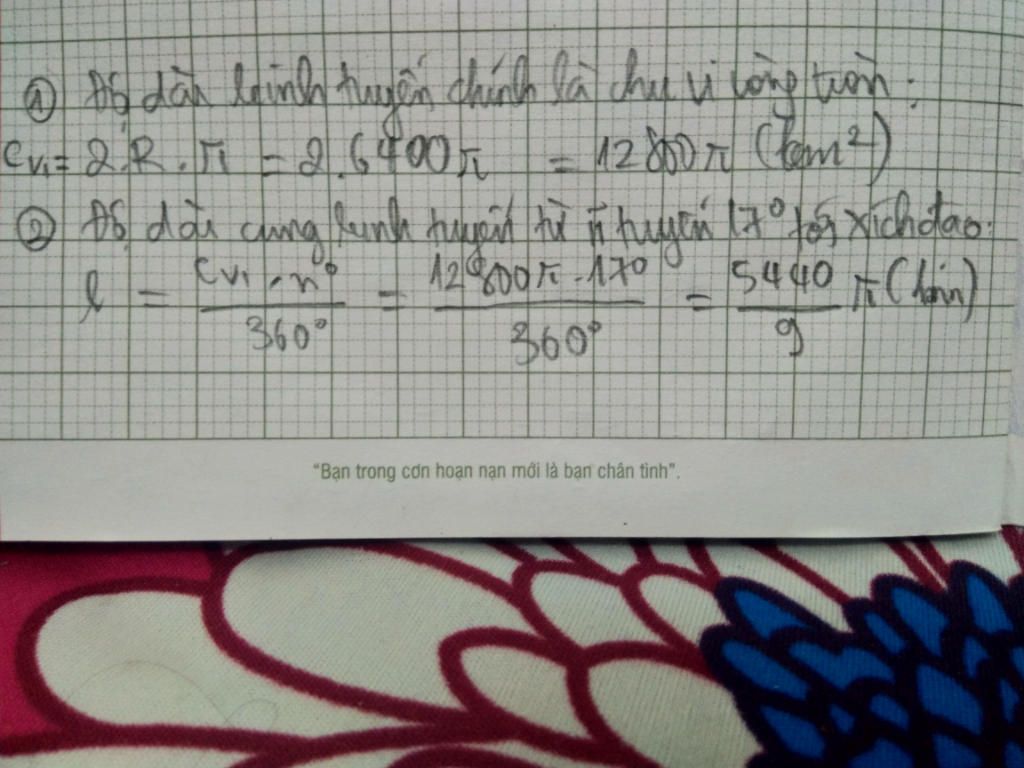 ① Độ dài kinh tuyến chính là chu vi vòng tròn:
CV₁ = 2.R.π = 2.6400π = 12800π (km²)
② Độ dài cung kinh tuyến từ vĩ tuyến 17° tới xích đạo:
l = CV₁.n°/360° = 12800π.17°/360° = 5440/9 π (km)
"Bạn trong cơn hoạn nạn mới là bạn chân tình".